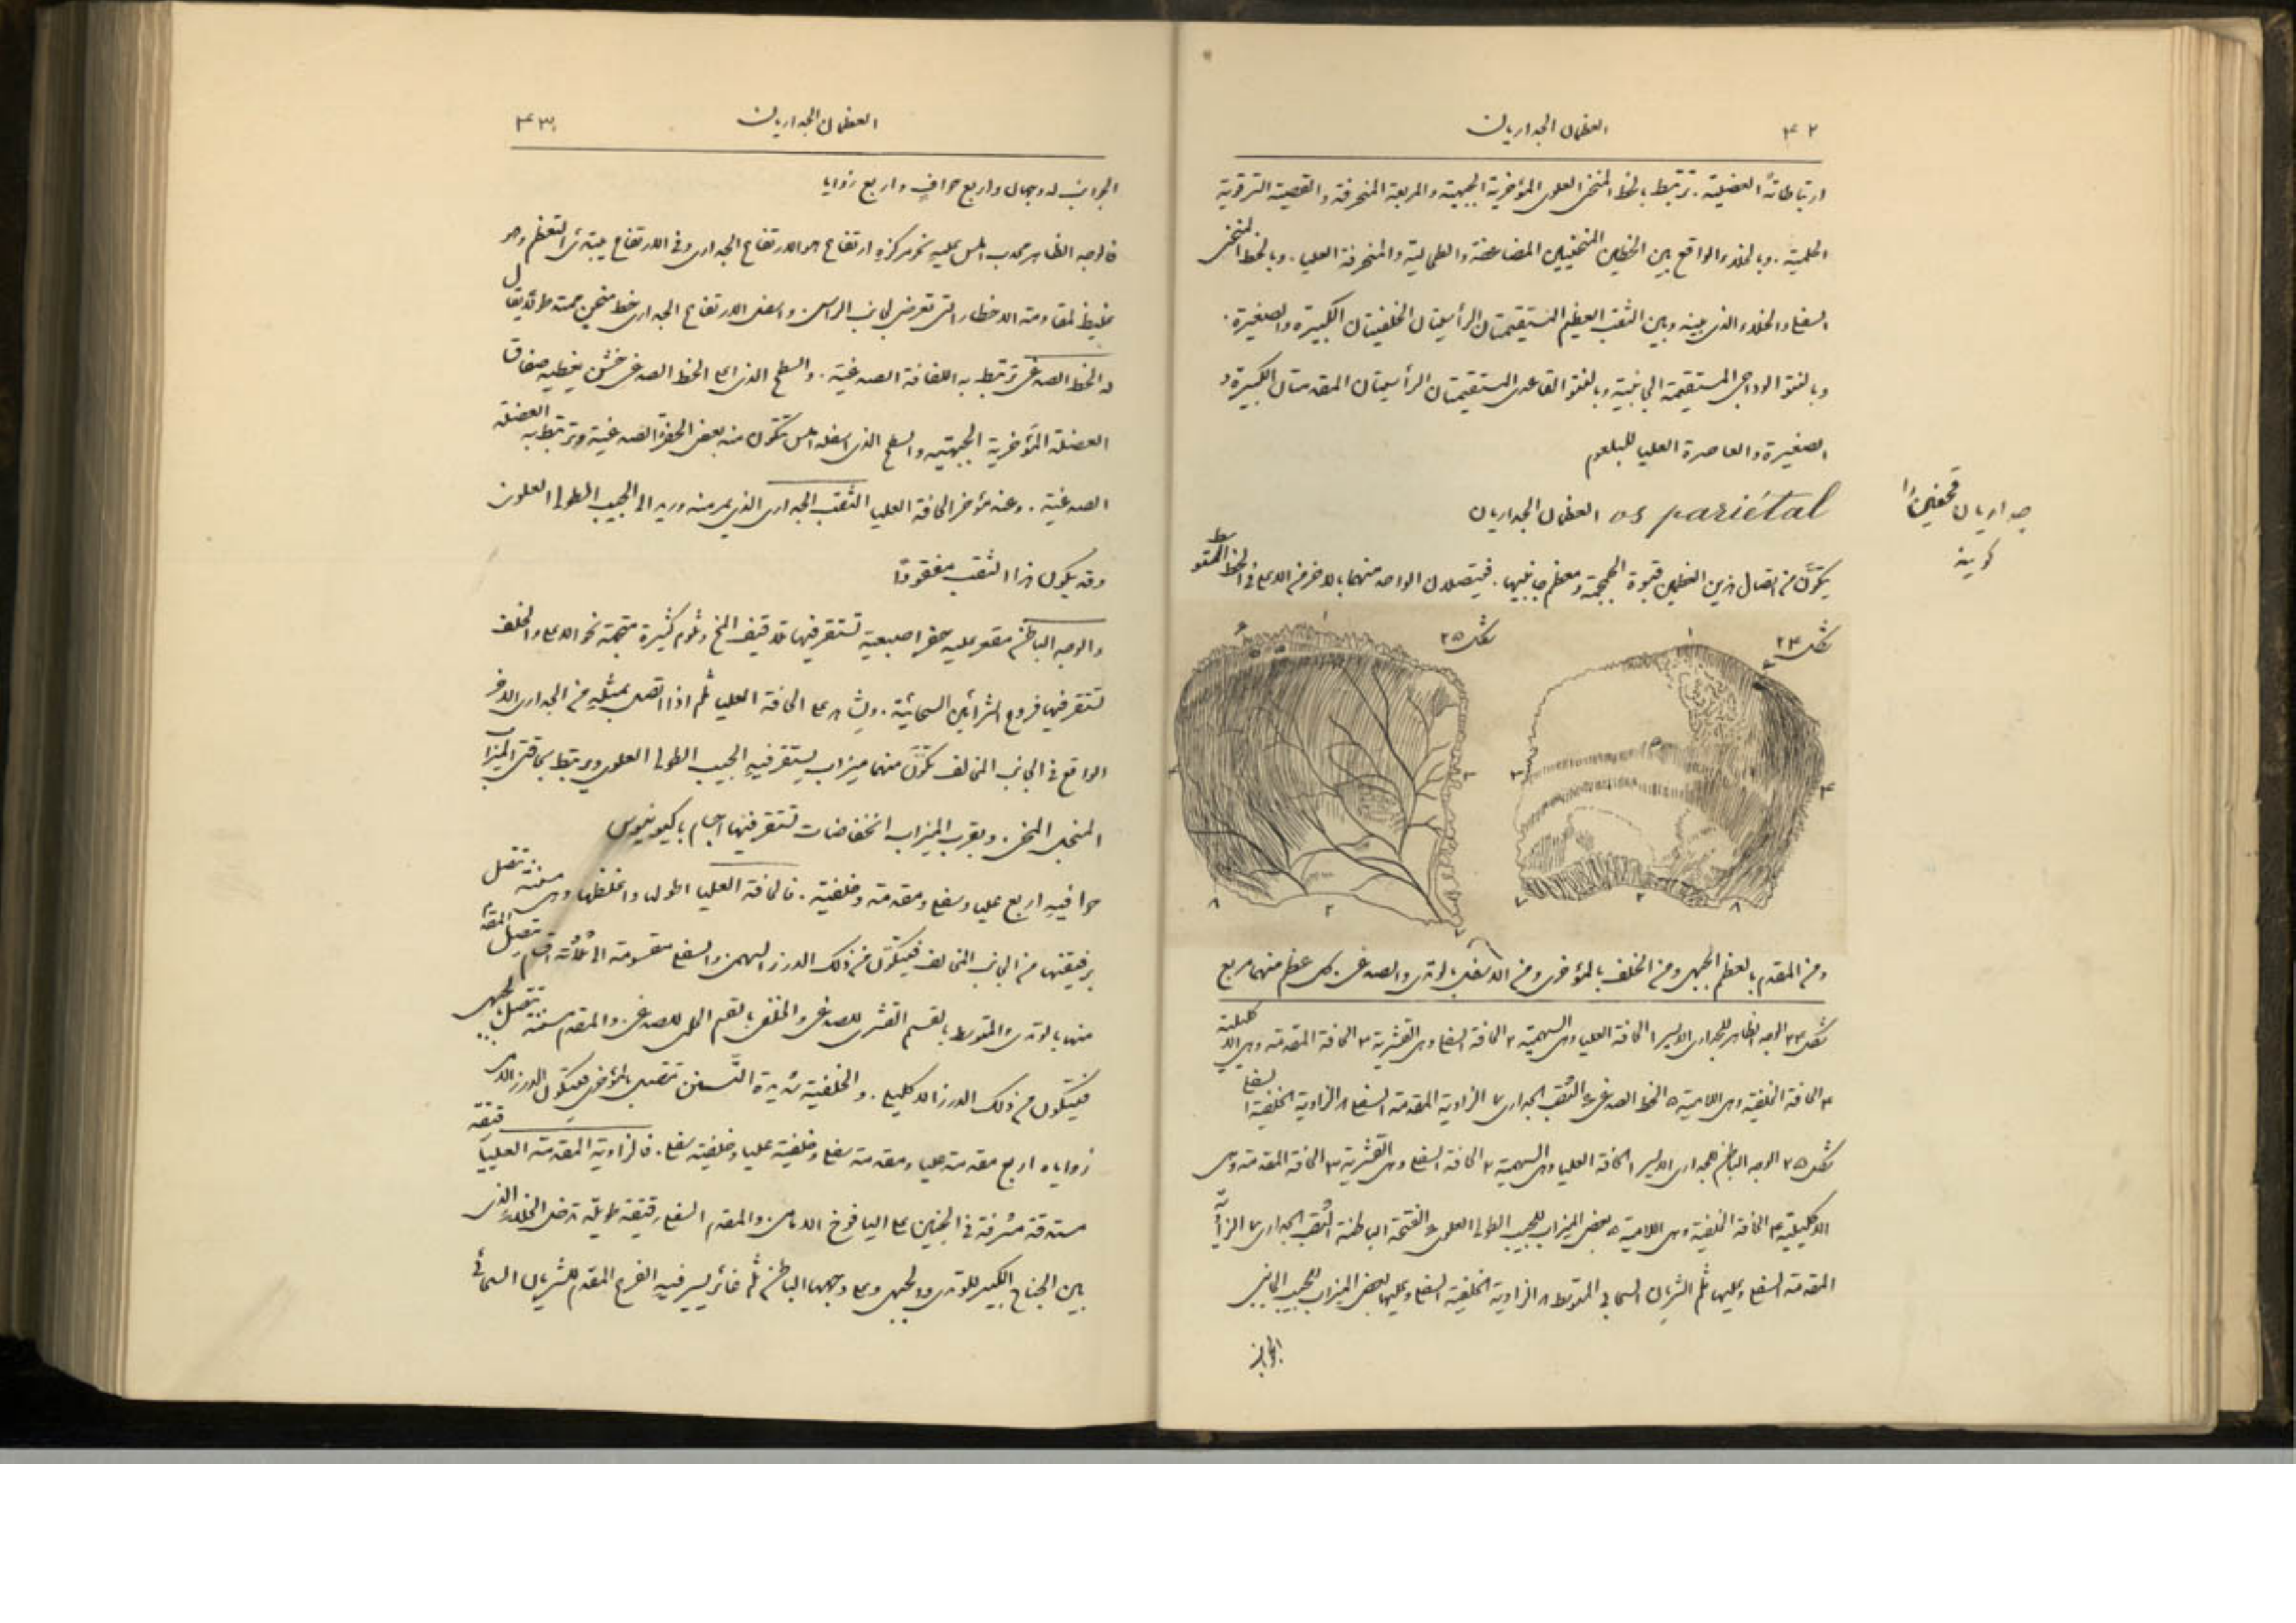 ٤٢
العظمان الجداريان
ارتباطاتهُ العضلية . ترتبط بالخط المنحني العلوي المؤخرية الجبهية والمربعة المنحرفة والقصية الترقوية
الحلمية . وبالخلاء الواقع بين الخطين المنحنيين المضاعفة والطحالية والمنحرفة العليا . وبالخط المنحني
السفلي والخلاء الذي بينه وبين الثقب العظيم المستقيمتان الرأسيتان الخلفيتان الكبيرة والصغيرة .
وبالنتو الوداجي المستقيمة الجانبية وبالنتو القاعدي المستقيمتان الرأسيتان المقدمتان الكبيرة و
الصغيرة والعاصرة العليا للبلعوم
os pariétal العظمان الجداريان
جداريان
يتكوَّن من اتصال هذين العظمين قبوة الجمجمة ومعظم جانبيها . فيتصلان الواحد منهما بالاخر من الاعلى في الخط المتوسط
شكل ٢٤
شكل ٢٥
ومن المقدم بالعظم الجبهي ومن الخلف بالمؤخري ومن الاسفل بالوتدي والصدغي . كل عظم منهما مربع
شكل ٢٤ الوجه الظاهر للجداري الايسر ١ الحافة العليا وهي السهمية ٢ الحافة السفلى وهي القشرية ٣ الحافة المقدمة وهي الاكليلية
٤ الحافة الخلفية وهي اللامية ٥ الخط الصدغي ٦ الثقب الجداري ٧ الزاوية المقدمة السفلى ٨ الزاوية الخلفية السفلى
شكل ٢٥ الوجه الباطن للجداري الايسر ١ الحافة العليا وهي السهمية ٢ الحافة السفلى وهي القشرية ٣ الحافة المقدمة وهي
الاكليلية ٤ الحافة الخلفية وهي اللامية ٥ بعض الميزاب للجيب الطولي العلوي ٦ الفتحة الباطنة للثقب الجداري ٧ الزاوية
المقدمة السفلى وعليها ثلم الشريان السحائي المتوسط ٨ الزاوية الخلفية السفلى وعليها بعض الميزاب للجيب الجانبي
الجوانب
العظمان الجداريان
٤٣
الجوانب له وجهان واربع حوافٍ واربع زوايا
فالوجه الظاهر محدب املس عليه نحو مركزهِ ارتفاع هو الارتفاع الجداري وفي الارتفاع يبتدئ التعظم وهو
غليظ لمقاومة الاخطار التي تعرض لجانب الراس . واسفل الارتفاع الجداري خط منحنٍ ممتد طولاً يقال
له الخط الصدغي ترتبط به اللفافة الصدغية . والسطح الذي اعلى الخط الصدغي خشن يغطيه صفاق
العضلة المؤخرية الجبهية والسطح الذي اسفله املس تتكون منه بعض الحفرة الصدغية وترتبط به العضلة
الصدغية . وعند مؤخر الحافة العليا الثقب الجداري الذي يمر منه وريد الى الجيب الطولي العلوي
وقد يكون هذا الثقب مفقودًا
والوجه الباطن مقعر عليه حفر اصبعية تستقر فيها تلافيف المخ وثلوم كثيرة متجهة نحو الاعلى والخلف
تستقر فيها فروع الشرائين السحائية . ويشاهد على الحافة العليا ثلم اذا اتصل بمثيله من الجداري الاخر
الواقع في الجانب المخالف تكوَّن منهما ميزاب يستقر فيهِ الجيب الطولي العلوي ويرتبط بحافتي الميزاب
المنجل المخي . وبقرب الميزاب انخفاضات تستقر فيها اجسام باكيونيوس
حوافيه اربع عليا وسفلى ومقدمة وخلفية . فالحافة العليا اطولها واغلظها وهي مسننة تتصل
برفيقتها من الجانب المخالف فيتكوَّن من ذلك الدرز السهمي والسفلى مقسومة الى ثلاثة اقسام يتصل المقدم
منها بالوتدي والمتوسط بالقسم القشري للصدغي والخلفي بالقسم الحلمي للصدغي . والمقدمة مسننة تتصل بالجبهي
فيتكون من ذلك الدرز الاكليلي . والخلفية شديدة التسنن تتصل بالمؤخري فيتكون الدرز اللامي
زواياه اربع مقدمة عليا ومقدمة سفلى وخلفية عليا وخلفية سفلى . فالزاوية المقدمة العليا رقيقة
مستدقة مشرفة في الجنين على اليافوخ الامامي . والمقدم السفلى رقيقة طويلة تدخل الخلاء الذي
بين الجناح الكبير للوتدي والجبهي وعلى وجهها الباطن ثلم غائر يسير فيهِ الفرع المقدم للشريان السحائي